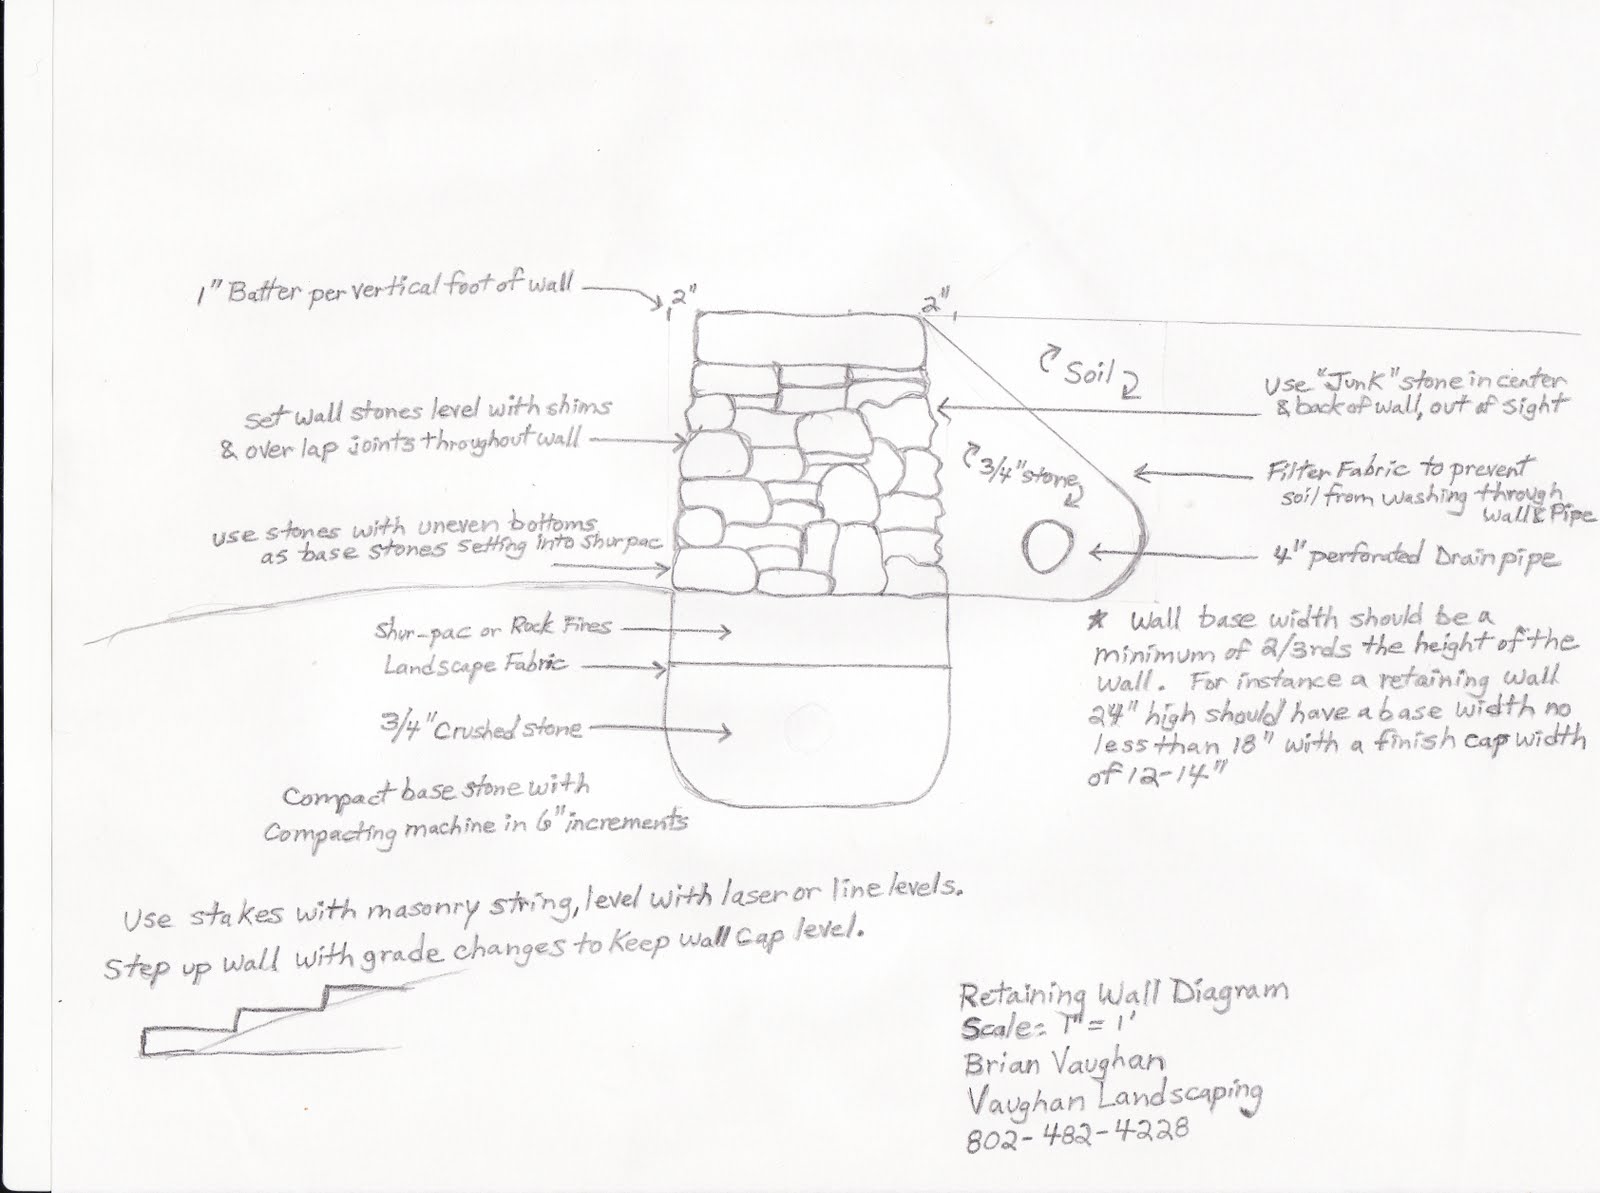 1" Batter per vertical foot of wall
2"
2"
Soil
Use "Junk" stone in center
& back of wall, out of sight
Set wall stones level with shims
& over lap joints throughout wall
3/4" stone
Filter Fabric to prevent
soil from washing through
wall & Pipe
use stones with uneven bottoms
as base stones setting into Shurpac
4" perforated Drain pipe
Shur-pac or Rock Fines
Landscape Fabric
3/4" Crushed Stone
Compact base stone with
Compacting machine in 6" increments
* Wall base width should be a
minimum of 2/3rds the height of the
wall. For instance a retaining wall
24" high should have a base width no
less than 18" with a finish cap width
of 12-14"
Use stakes with masonry string, level with laser or line levels.
Step up wall with grade changes to keep wall cap level.
Retaining Wall Diagram
Scale: 1" = 1'
Brian Vaughan
Vaughan Landscaping
802-482-4228